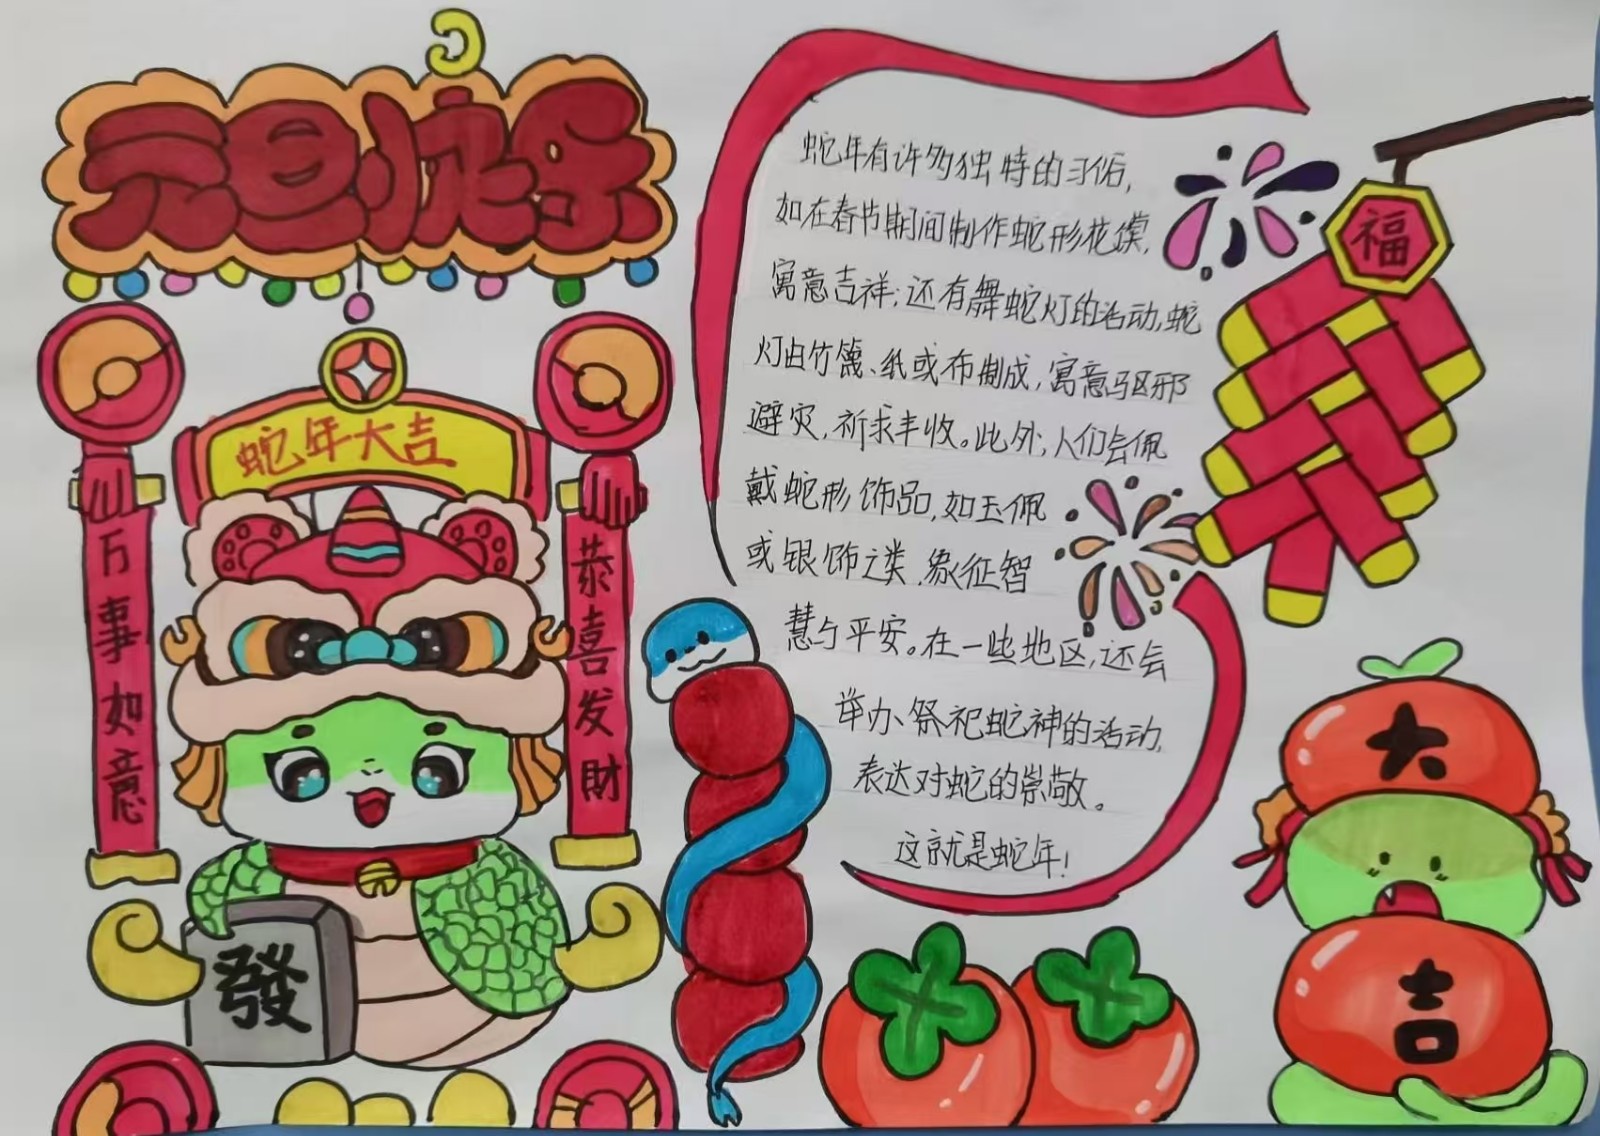 元旦快乐
蛇年大吉
万事如意
恭喜发財
發
蛇年有许多独特的习俗,
如在春节期间制作蛇形花馍,
寓意吉祥;还有舞蛇灯的活动,蛇
灯由竹篾、纸或布制成,寓意驱邪
避灾,祈求丰收。此外,人们会佩
戴蛇形饰品,如玉佩
或银饰之类,象征智
慧与平安。在一些地区,还会
举办祭祀蛇神的活动,
表达对蛇的崇敬。
这就是蛇年!
福
大
吉